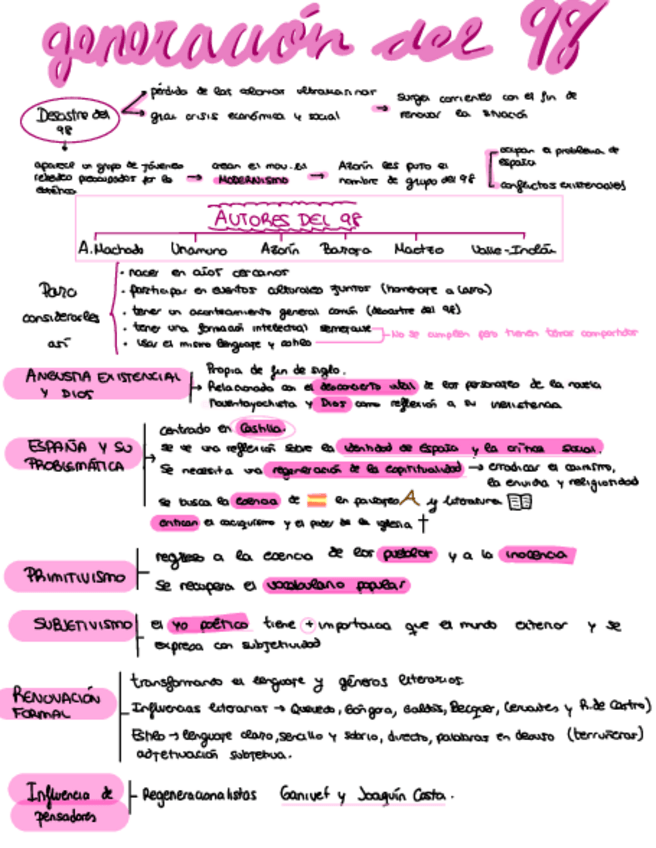 generación del 98
Desastre del 98
pérdida de las colonias ultramarinas
gran crisis económica y social
surgen corrientes con el fin de
renovar la situación
aparece un grupo de jóvenes
rebeldes preocupados por la
estética
crean el mov. del
MODERNISMO
Azorín les puso el
nombre de grupo del 98
ocupan el problema de
españa
conflictos existenciales
AUTORES DEL 98
A.Machado Unamuno Azorín Baroja Maetzo Valle-Inclán
Para
considerarles
así
· nacer en años cercanos
· participar en eventos culturales juntos (homenaje a Larra)
· tener un acontecimiento general común (desastre del 98)
· tener una formación intelectual semejante
· usar el mismo lenguaje y estilo
No se cumplen pero tienen temas compartidos
ANGUSTIA EXISTENCIAL
Y DIOS
Propia de fin de siglo.
Relacionado con el desconcierto vital de los personajes de la novela
noventayochista y Dios como reflexión a su inexistencia
ESPAÑA Y SU
PROBLEMÁTICA
centrado en Castilla.
se ve una reflexión sobre la identidad de España y la crítica social.
Se necesita una regeneración de la espiritualidad → erradicar el
la envidia y religiosidad
se busca la esencia de en paisajes y literatura
critican el caciquismo y el poder de la iglesia
PRIMITIVISMO
regreso a la esencia de los pueblos y a la inocencia
Se recupera el vocabulario popular
SUBJETIVISMO
el yo poético tiene + importancia que el mundo exterior y se
expresa con subjetividad
RENOVACIÓN
FORMAL
transformando el lenguaje y géneros literarios.
Influencias literarias → Quevedo, Góngora, Galdós, Becquer, Cervantes y R.de Castro)
Estilo → lenguaje claro, sencillo y sobrio, directo, palabras en desuso (terruñeras)
adjetivación subjetiva.
Influencia de
pensadores
Regeneracionalistas Ganivet y Joaquín Costa.